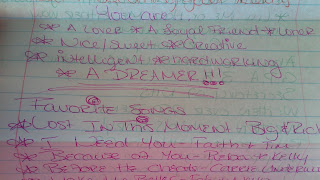 You are
* A Lover * A Loyal Friend * Loner
* Nice/Sweet * Creative
* intelligent * hardworking
* A DREAMER!!!
Favorite Songs
* Lost In This Moment - Big & Rich
* I Need You - Faith & Tim
* Because of You - Reba & Kelly
* Before He Cheats - Carrie Underwood